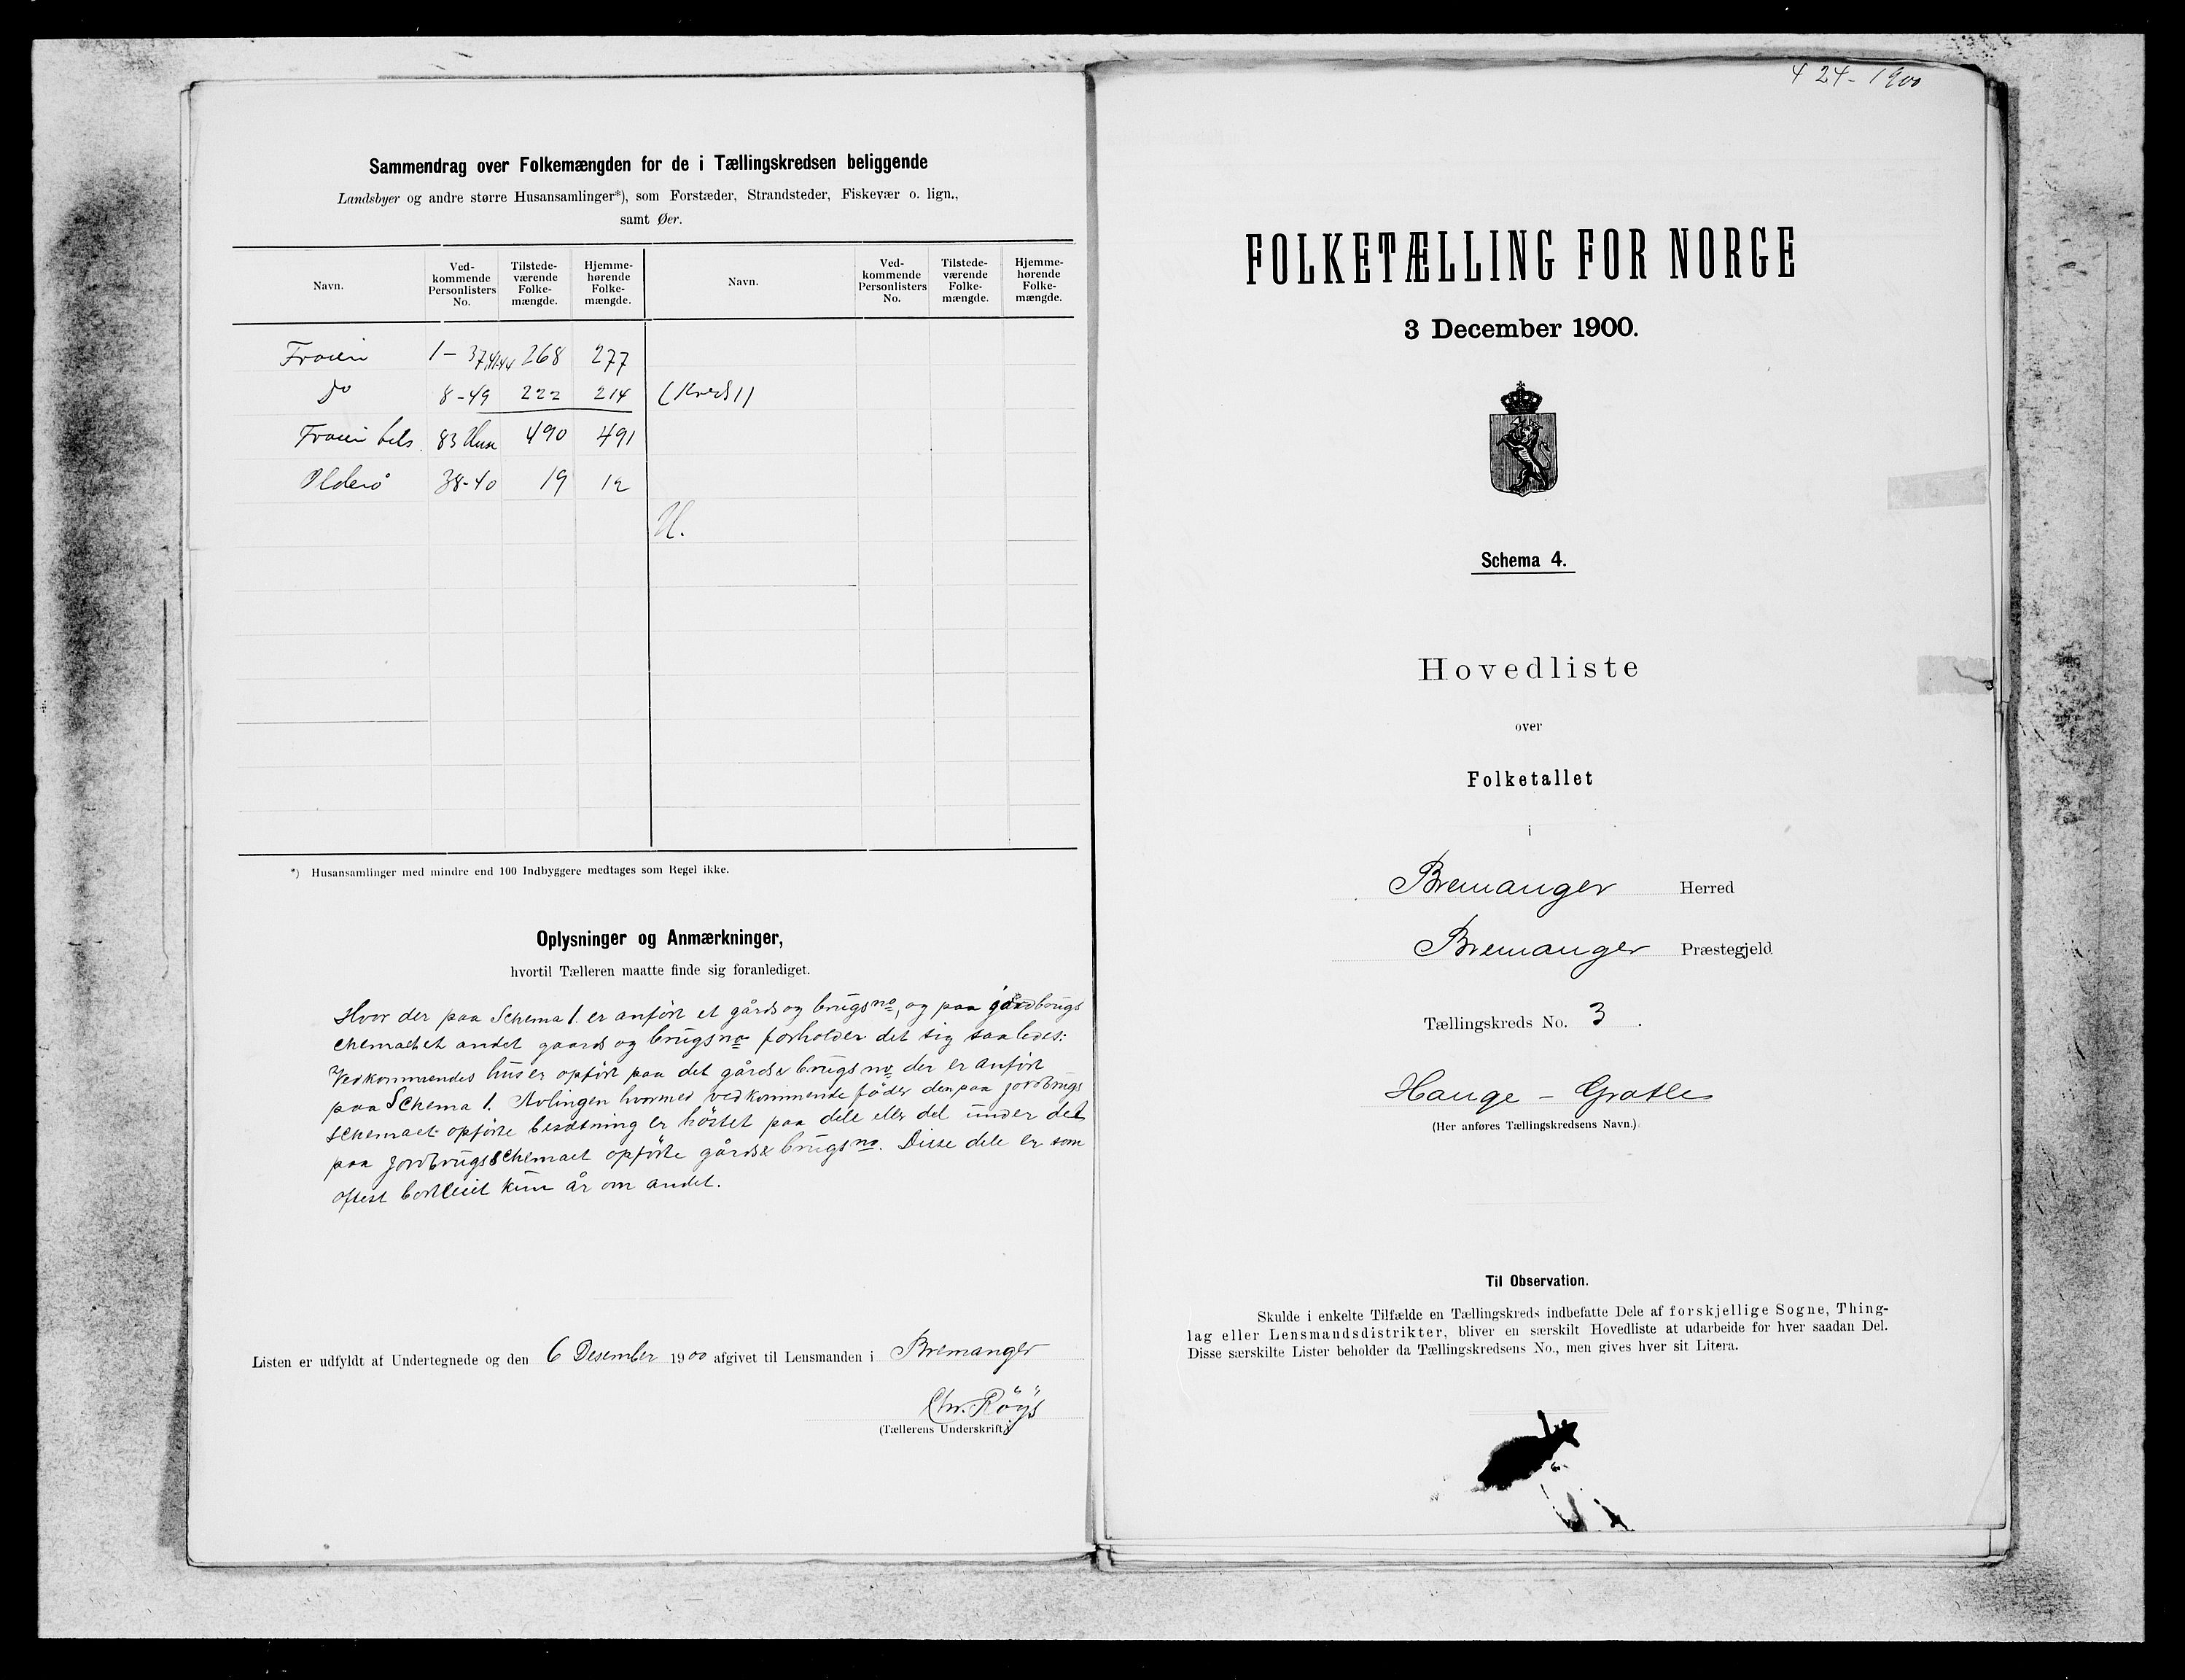 Sammendrag over Folkemængden for de i Tællingskredsen beliggende
Landsbyer og andre større Husansamlinger*), som Forstæder, Strandsteder, Fiskevær o. lign.,
samt Øer.
Navn. Ved-kommende Personlisters No. Tilstede-værende Folke-mængde. Hjemme-hørende Folke-mængde. Navn. Ved-kommende Personlisters No. Tilstede-værende Folke-mængde. Hjemme-hørende Folke-mængde.
Froien 1-37,41-44 268 277
Do 8-49 222 214 (Kreds 1)
Froien hels. 83 Huse 490 491
Olderö 38-40 19 12
U.
*) Husansamlinger med mindre end 100 Indbyggere medtages som Regel ikke.
Oplysninger og Anmærkninger,
hvortil Tælleren maatte finde sig foranlediget.
Hvor der paa Schema 1. er anført et gårds og brugs no, og paa jordbrugs
chemaet et andet gaards og brugs no forholder det sig saaledes:
Vedkommendes hus er opført paa det gårds & brugs no der er anført
paa Schema 1. Avlingen hvormed vedkommende föder den paa jordbrugs
schemaet opførte besætning er höstet paa dele eller del under det
paa jordbrugsschemaet opførte gårds & brugs no. Disse dele er som
oftest bortleiet kun år om andet.
Listen er udfyldt af Undertegnede og den 6 Desember 1900 afgivet til Lensmanden i Bremanger
Chr. Röys
(Tællerens Underskrift.)
424-1900
FOLKETÆLLING FOR NORGE
3 December 1900.
Schema 4.
Hovedliste
over
Folketallet
i
Bremanger Herred
Bremanger Præstegjeld
Tællingskreds No. 3.
Hauge - Grotle
(Her anføres Tællingskredsens Navn.)
Til Observation.
Skulde i enkelte Tilfælde en Tællingskreds indbefatte Dele af forskjellige Sogne, Thing-
lag eller Lensmandsdistrikter, bliver en særskilt Hovedliste at udarbeide for hver saadan Del.
Disse særskilte Lister beholder da Tællingskredsens No., men gives hver sit Litera.